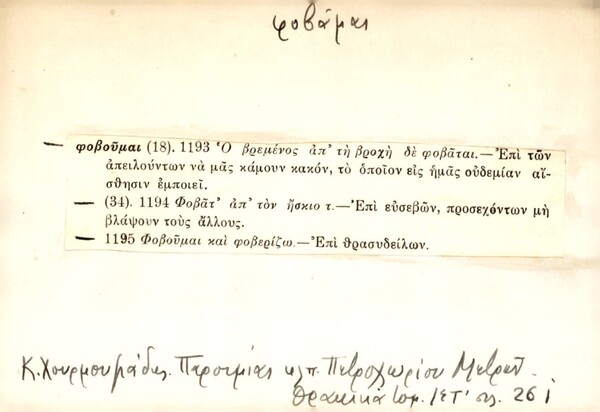 φοβάμαι
— φοβοῦμαι (18). 1193 Ὁ βρεμένος ἀπ' τὴ βροχὴ δὲ φοβᾶται.—Ἐπὶ τῶν
ἀπειλούντων νὰ μᾶς κάμουν κακόν, τὸ ὁποῖον εἰς ἡμᾶς οὐδεμίαν αἴ-
σθησιν ἐμποιεῖ.
— (34). 1194 Φοβᾶτ' ἀπ' τὸν ἤσκιο τ.—Ἐπὶ εὐσεβῶν, προσεχόντων μὴ
βλάψουν τοὺς ἄλλους.
— 1195 Φοβοῦμαι καὶ φοβερίζω.—Ἐπὶ θρασυδείλων.
Κ. Χουρμουζιάδης. Παροιμίαι κλπ. Πετροχωρίου Μετρῶν.
Θρακικὰ τομ. ΙΣΤ' σ. 261